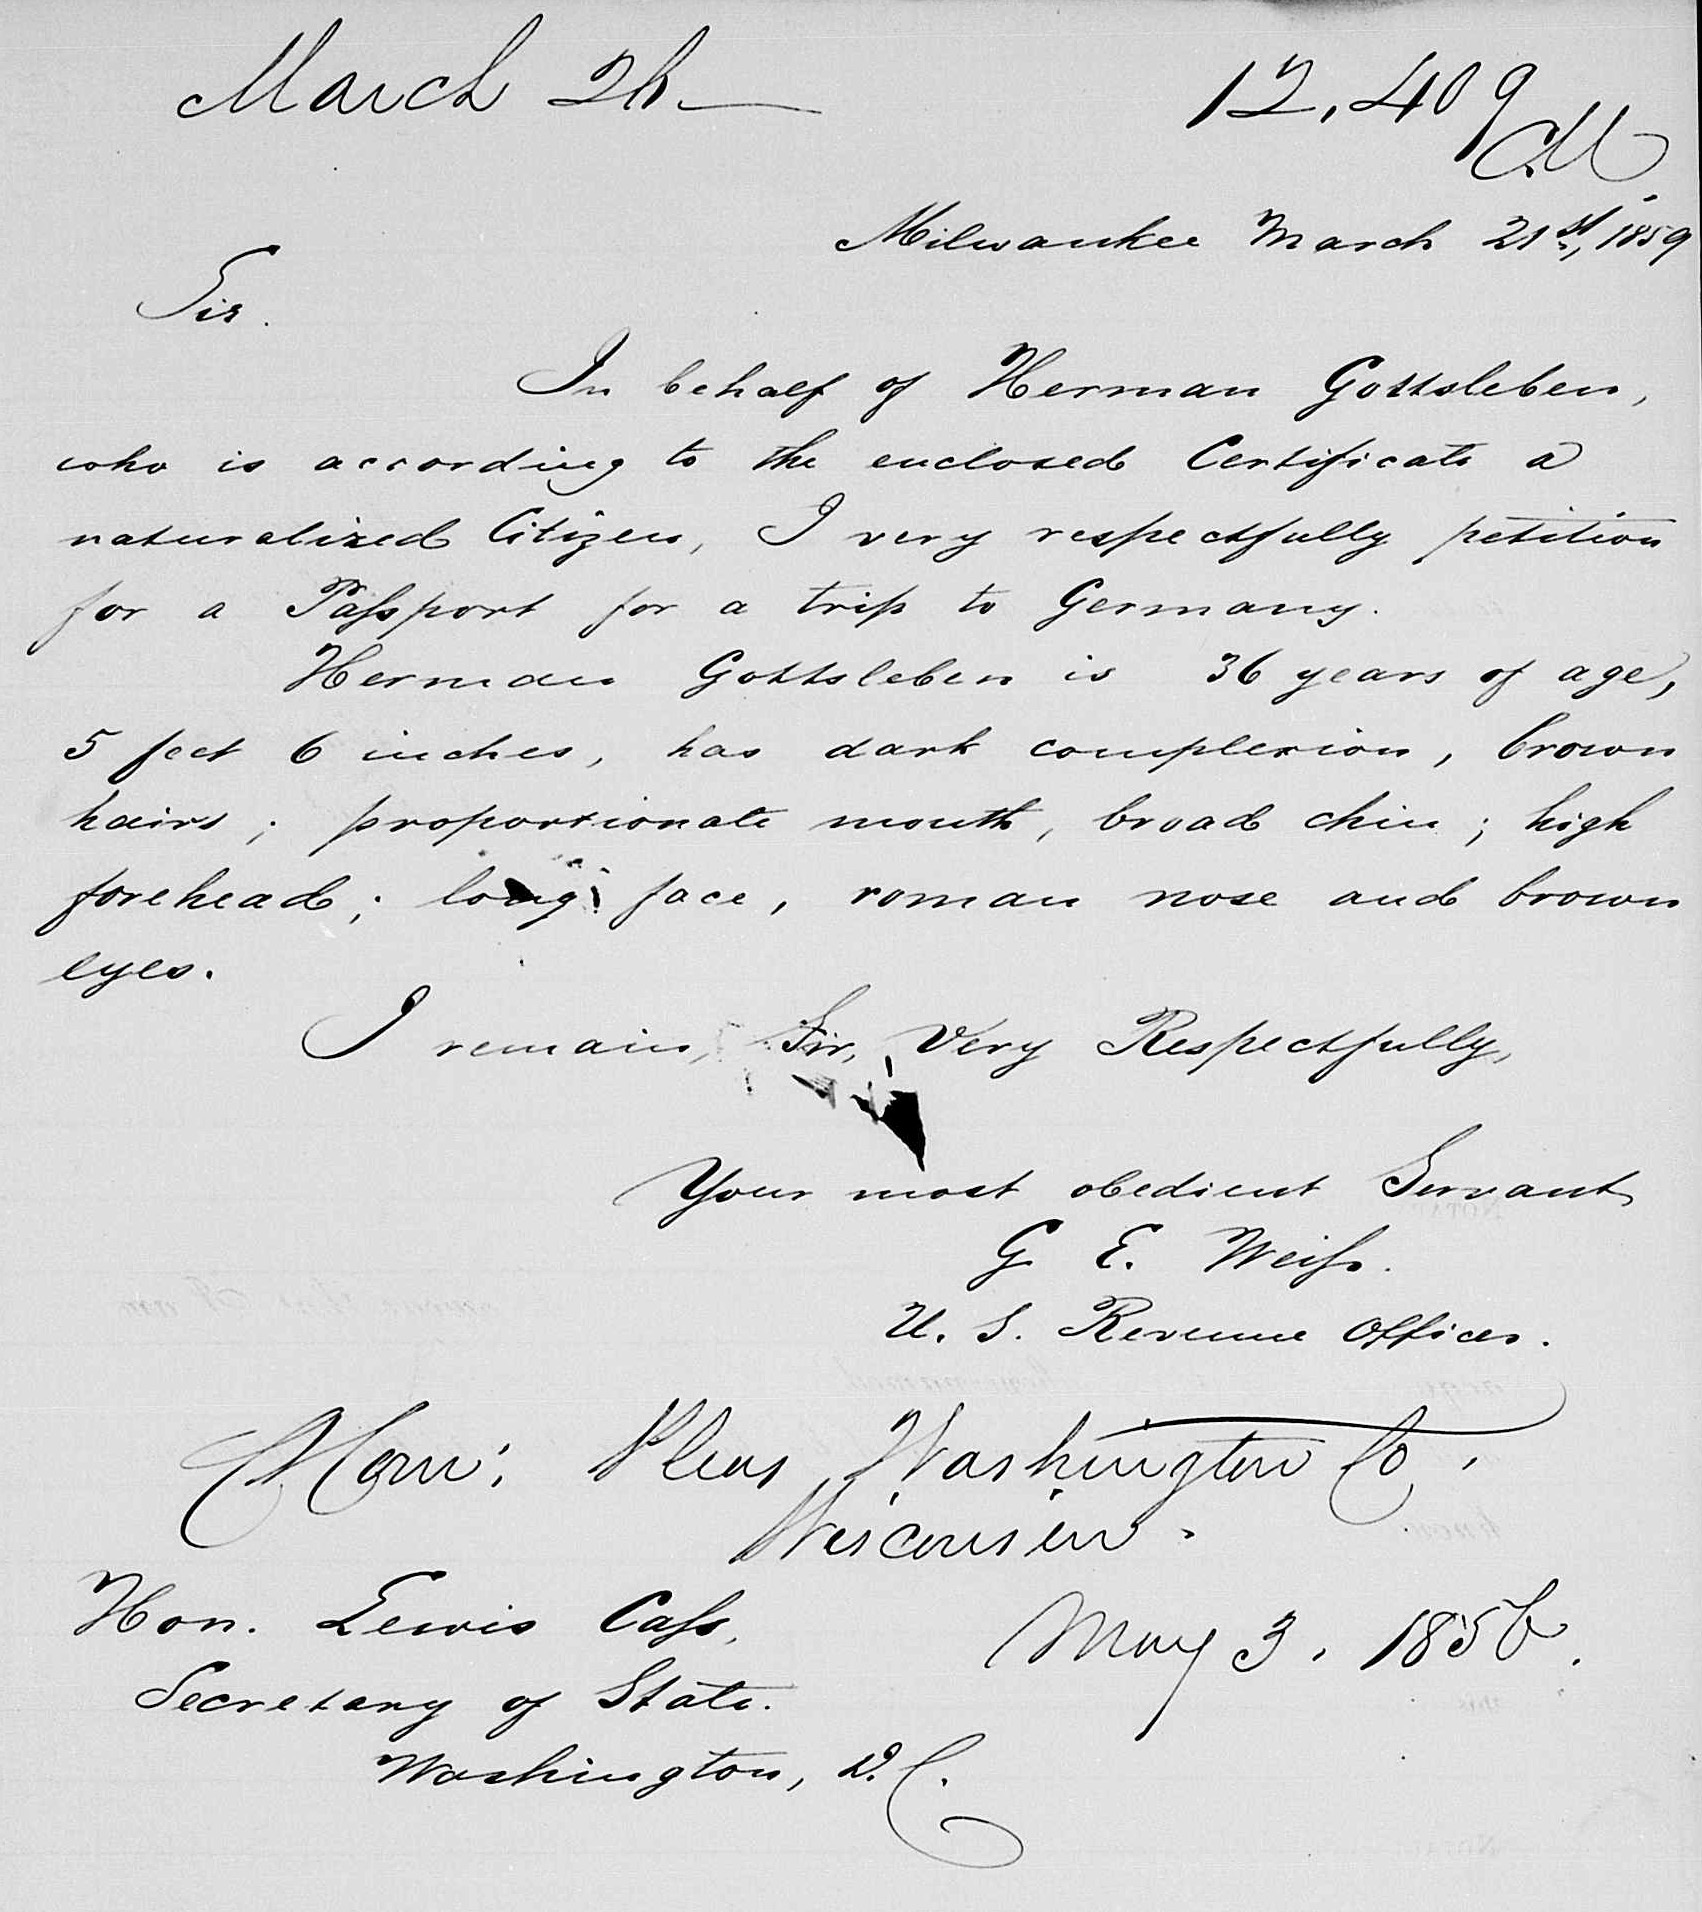 March 26
12,409
CM
Milwaukee March 21st, 1859
Sir.
In behalf of Herman Gottsleben,
who is according to the enclosed Certificate a
naturalized Citizen, I very respectfully petition
for a Paſsport for a trip to Germany.
Herman Gottsleben is 36 years of age,
5 feet 6 inches, has dark complexion, brown
hairs; proportionate mouth, broad chin; high
forehead; long face, roman nose and brown
eyes.
I remain, Sir, Very Respectfully,
Your most obedient Servant
G. E. Weiſs.
U. S. Revenue Officer.
Washington Co,
Wisconsin.
Hon. Lewis Caſs,
May 3. 1856.
Secretary of State.
Washington, D. C.